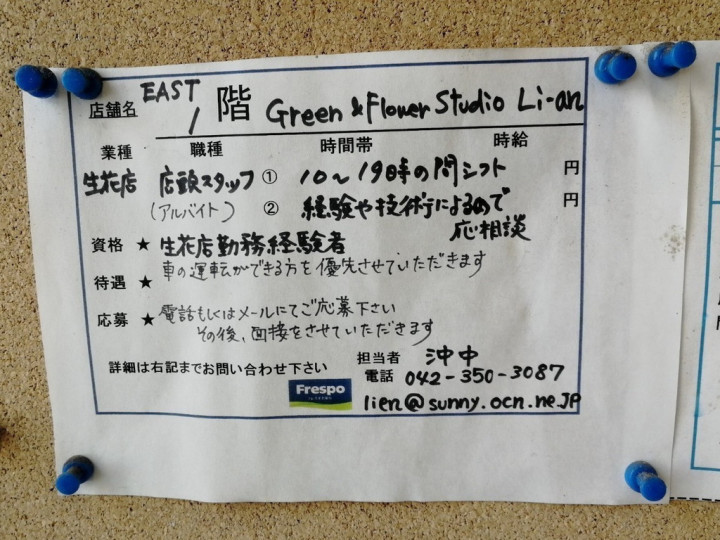 店舗名 EAST 1 階 Green & Flower Studio Li-an
業種 職種 時間帯 時給
生花店 店頭スタッフ ① 10〜19時の間シフト 円
(アルバイト) ② 経験や技術によるので 円
応相談
資格 ★ 生花店勤務経験者
車の運転ができる方を優先させていただきます
待遇 ★
応募 ★ 電話もしくはメールにてご応募下さい
その後、面接をさせていただきます
詳細は右記までお問い合わせ下さい
担当者 沖中
電話 042-350-3087
lien@sunny.ocn.ne.jp
Frespo